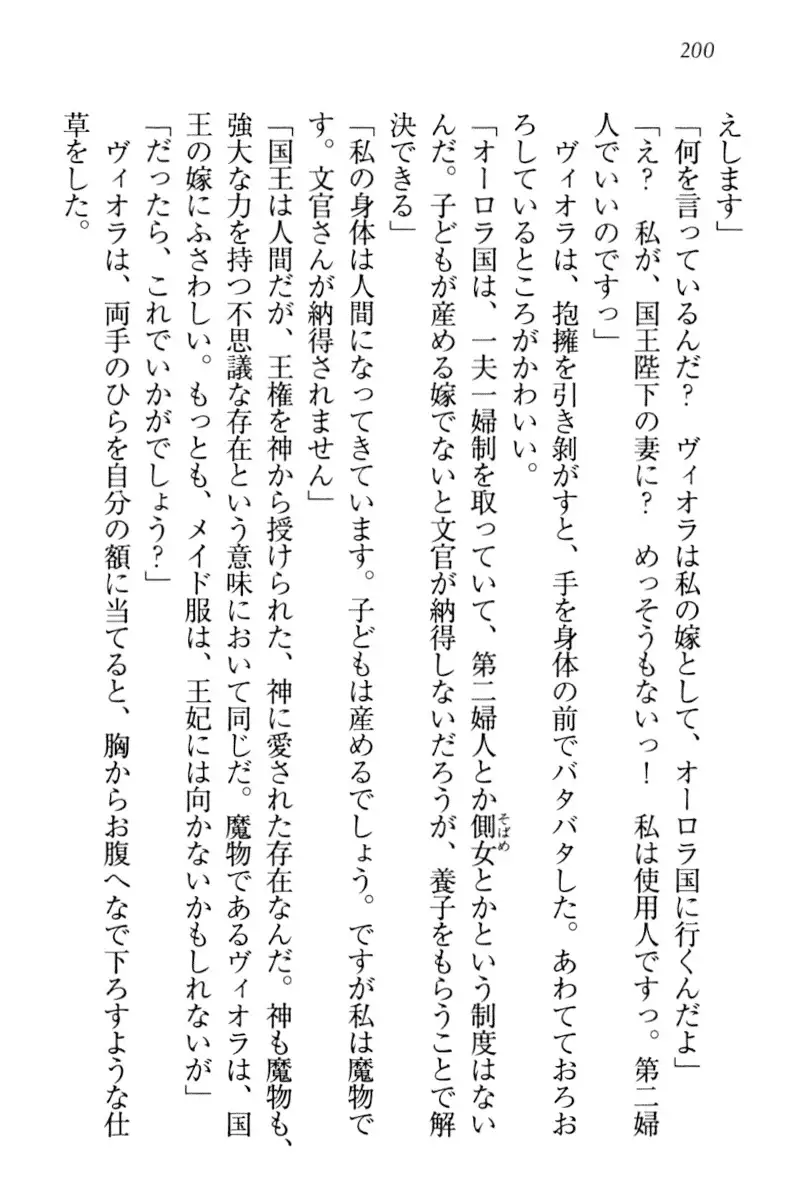 200
えします」
「何を言っているんだ？　ヴィオラは私の嫁として、オーロラ国に行くんだよ」
「え？　私が、国王陛下の妻に？　めっそうもないっ！　私は使用人ですっ。第二婦
人でいいのですっ」
　ヴィオラは、抱擁を引き剥がすと、手を身体の前でバタバタした。あわてておろお
ろしているところがかわいい。
「オーロラ国は、一夫一婦制を取っていて、第二婦人とか側女とかという制度はない
そばめ
んだ。子どもが産める嫁でないと文官が納得しないだろうが、養子をもらうことで解
決できる」
「私の身体は人間になってきています。子どもは産めるでしょう。ですが私は魔物で
す。文官さんが納得されません」
「国王は人間だが、王権を神から授けられた、神に愛された存在なんだ。神も魔物も、
強大な力を持つ不思議な存在という意味において同じだ。魔物であるヴィオラは、国
王の嫁にふさわしい。もっとも、メイド服は、王妃には向かないかもしれないが」
「だったら、これでいかがでしょう？」
　ヴィオラは、両手のひらを自分の額に当てると、胸からお腹へなで下ろすような仕
草をした。